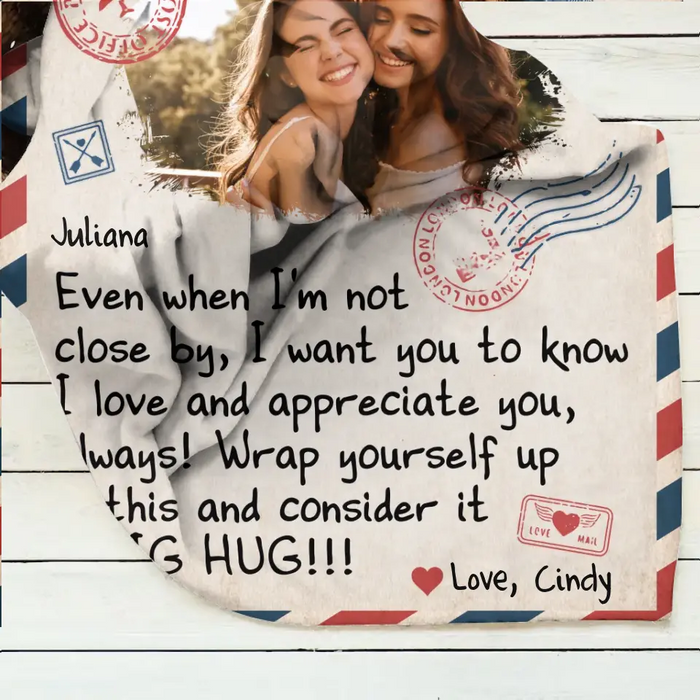 POST OFFICE
Juliana
LONDON LONDON LONDON
Even when I'm not
close by, I want you to know
I love and appreciate you,
lways! Wrap yourself up
this and consider it
G HUG!!!
LOVE MAIL
Love, Cindy